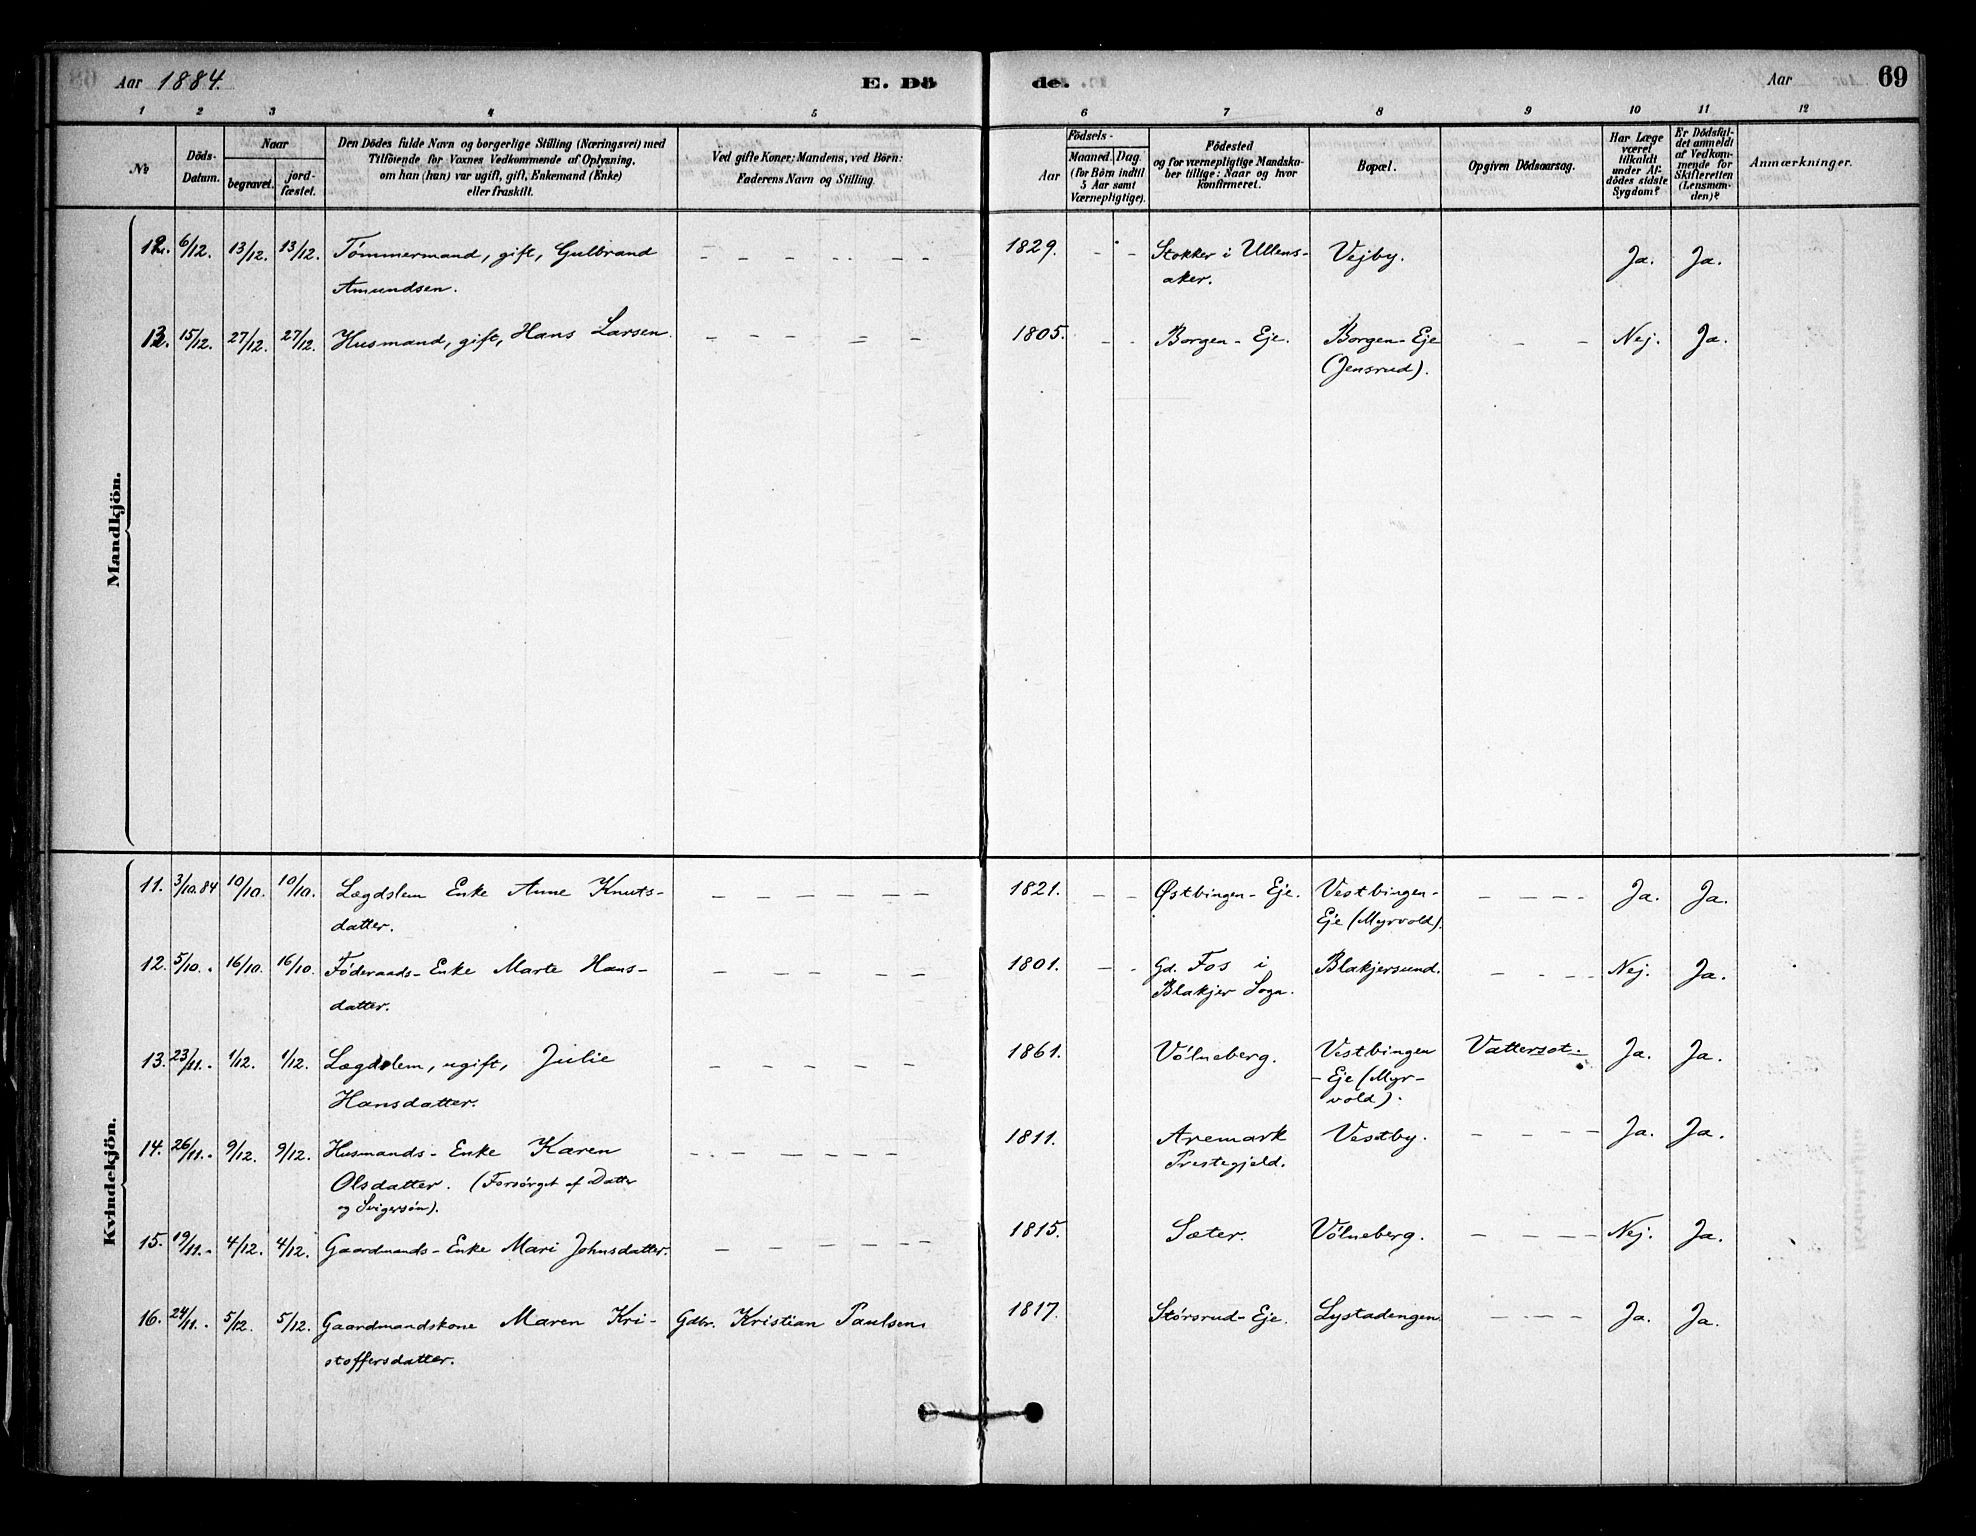 Aar 1884.
E. Dö
de.
Aar
69
1 2 3 4 5
6 7 8 9 10 11 12
No
Döds-
Datum.
Naar
begravet.
jord-
fæstet.
Den Dödes fulde Navn og borgerlige Stilling (Næringsvei) med
Tilföiende for Voxnes Vedkommende af Oplysning,
om han (hun) var ugift, gift, Enkemand (Enke)
eller fraskilt.
Ved gifte Koner: Mandens, ved Börn:
Faderens Navn og Stilling.
Födsels-
Aar
Maaned. Dag.
(for Börn indtil
5 Aar samt
Værnepligtige).
Födested
og for værnepligtige Mandska-
ber tillige: Naar og hvor
konfirmeret.
Bopæl.
Opgiven Dödsaarsag.
Har Læge
været
tilkaldt
under Af-
dödes sidste
Sygdom?
Er Dödsfal-
det anmeldt
af Vedkom-
mende for
Skifteretten
(Lensman-
den)?
Anmærkninger.
Mandkjön.
12. 6/12. 13/12. 13/12. Tømmermand, gift, Gulbrand
Amundsen.
1829. Stokker i Ullens-
aker.
Vejby. Ja. Ja.
13. 15/12. 27/12. 27/12. Husmand, gift, Hans Larsen.
1805. Borgen-Eje. Borgen-Eje
(Jensrud).
Nej. Ja.
Kvindekjön.
11. 3/10.84 10/10. 10/10. Lægdslem Enke Anne Knuts-
datter.
1821. Østbingen-Eje. Vestbingen-
Eje (Myrvold).
Ja. Ja.
12. 5/10. 16/10. 16/10. Føderaads-Enke Marte Hans-
datter.
1801. Gd. Fos i
Blakjer Sogn.
Blakjersund. Nej. Ja.
13. 23/11. 1/12. 1/12. Lægdslem, ugift, Julie
Hansdatter.
1861. Vølneberg. Vestbingen
-Eje (Myr-
vold).
Vattersot. Ja. Ja.
14. 26/11. 9/12. 9/12. Husmands-Enke Karen
Olsdatter. (Forsørget af Datter
og Svigersøn).
1811. Aremark
Prestegjeld.
Vestby. Ja. Ja.
15. 19/11. 4/12. 4/12. Gaardmands-Enke Mari Johnsdatter.
1815. Sæter. Vølneberg. Nej. Ja.
16. 24/11. 5/12. 5/12. Gaardmandskone Maren Kri-
stoffersdatter.
Gdbr. Kristian Paulsen
1817. Størsrud-Eje. Lystadengen. Ja. Ja.